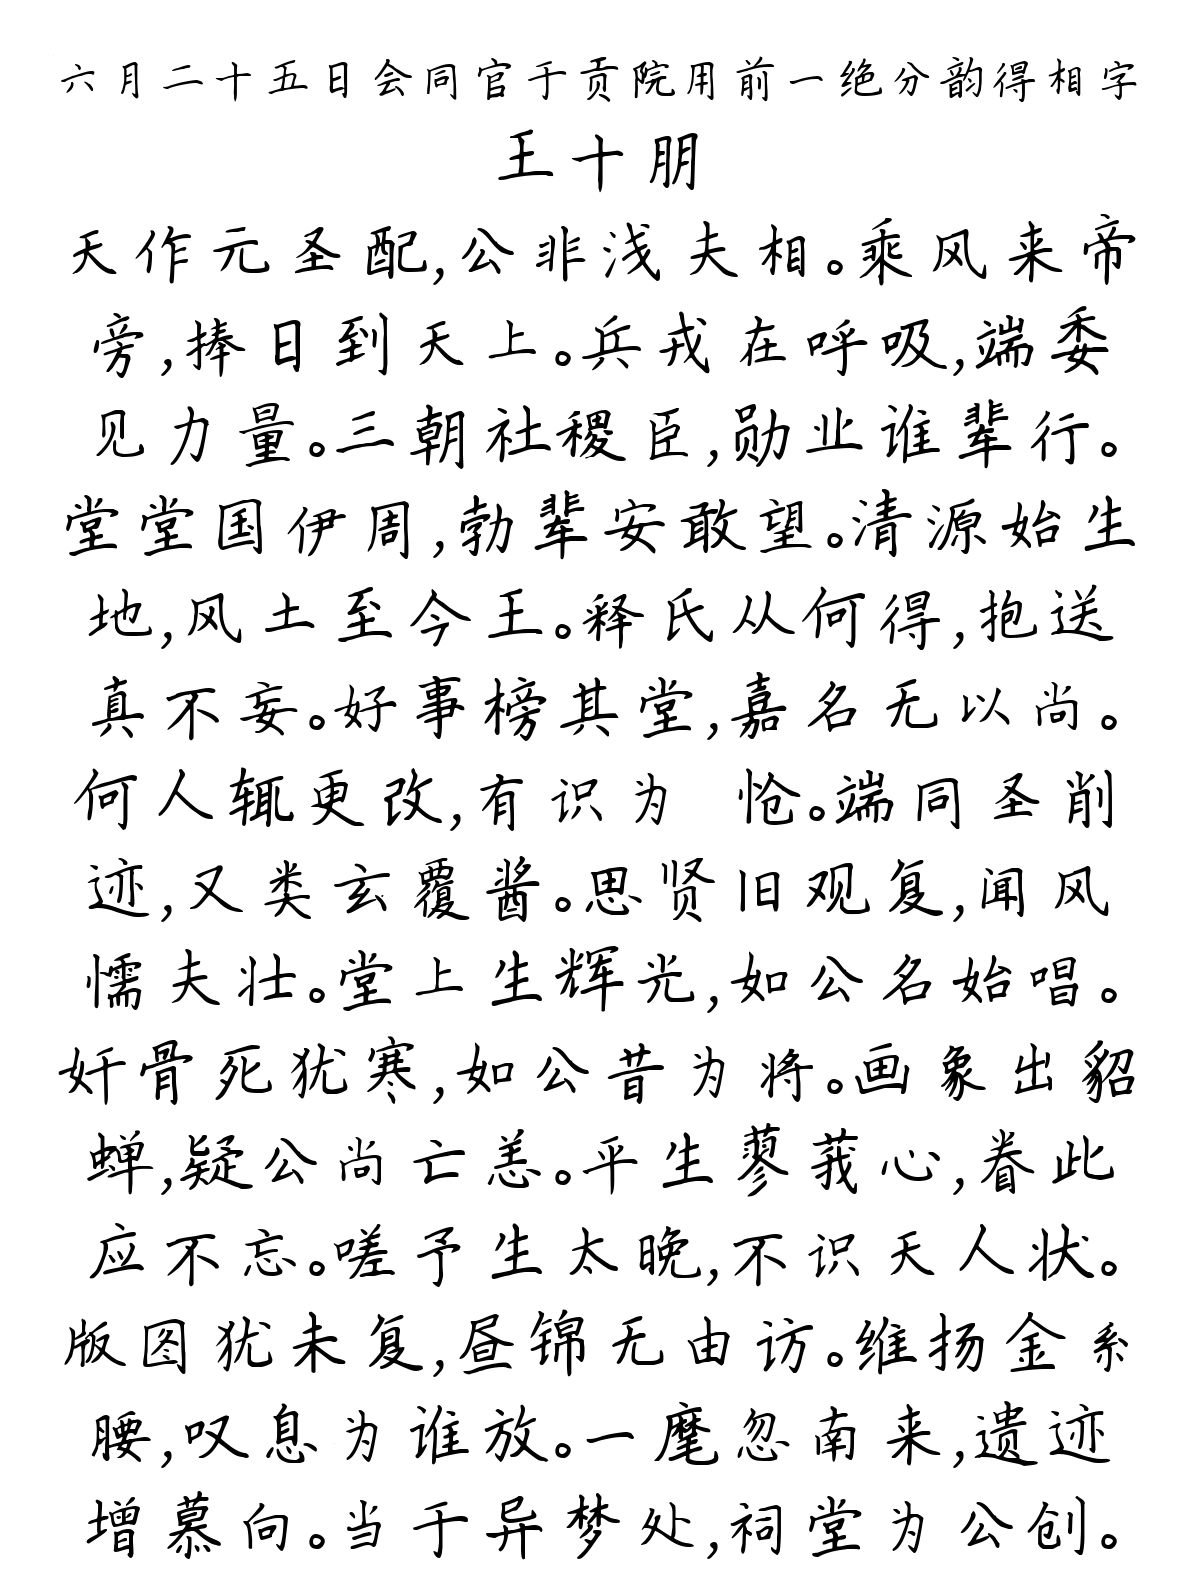 六月二十五日会同官于贡院用前一绝分韵得相字
王十朋
天作元圣配,公非浅夫相。乘风来帝
旁,捧日到天上。兵戎在呼吸,端委
见力量。三朝社稷臣,勋业谁辈行。
堂堂国伊周,勃辈安敢望。清源始生
地,风土至今王。释氏从何得,抱送
真不妄。好事榜其堂,嘉名无以尚。
何人辄更改,有识为 怆。端同圣削
迹,又类玄覆酱。思贤旧观复,闻风
懦夫壮。堂上生辉光,如公名始唱。
奸骨死犹寒,如公昔为将。画象出貂
蝉,疑公尚亡恙。平生蓼莪心,眷此
应不忘。嗟予生太晚,不识天人状。
版图犹未复,昼锦无由访。维扬金系
腰,叹息为谁放。一麾忽南来,遗迹
增慕向。当于异梦处,祠堂为公创。